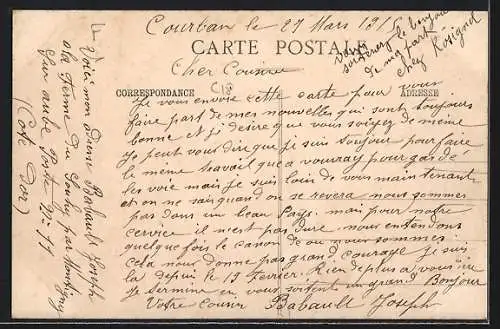 Courban le 27 Mars 1915
CARTE POSTALE
vous
donnerez le bonjour
de ma part
chez Rosignol
Cher Cousin
CORRESPONDANCE
ADRESSE
Je vous envoie cette carte pour vous
faire part de mes nouvelles qui sont toujours
bonne et je désire que vous soiyez de même
Je peut vous dire que je suis toujour pour faire
le meme travail que a vouvray pour gardé
les voie mais je suis loin de vous maintenant
et on ne sais quand on se revera nous sommes
pas dans un beau Pays. mais pour notre
cervice il n'est pas dure. nous entendons
quelque fois le canon de ou nous sommes.
cela nous donne pas grand courage je suis
la depui le 19 Fevrier. Rien de plus a vous dire
Je termine en vous soitent un grand Bonjour
Votre cousin Babault Joseph
Voici mon adresse Babault Joseph
a la Ferme du par Montigny
Sur aube Poste N° 11
(Cote Dor)